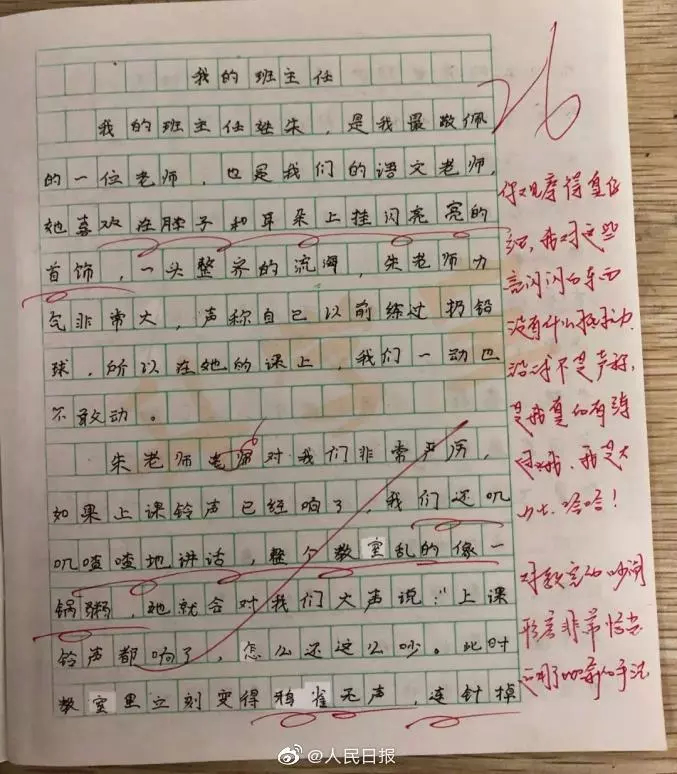 我的班主任
我的班主任姓朱,是我最敬佩
的一位老师,也是我们的语文老师,
她喜欢在脖子和耳朵上挂闪亮亮的
首饰,一头整齐的流海,朱老师力
气非常大,声称自已以前练过扔铅
球,所以在她的课上,我们一动也
不敢动。
朱老师老师对我们非常严厉,
如果上课铃声已经响了,我们还叽
叽喳喳地讲话,整个教室乱的像一
锅粥,她就会对我们大声说:"上课
铃声都响了,怎么还这么吵。此时
教室里立刻变得鸦雀无声,连针掉
26
你观摩得真仔
我对这些
闪闪的东西
没有什么抵抗力
不是声称,
是我真的有练
过
哈哈!
对教室的吵闹
形容非常恰当
运用了比喻的手法
@人民日报